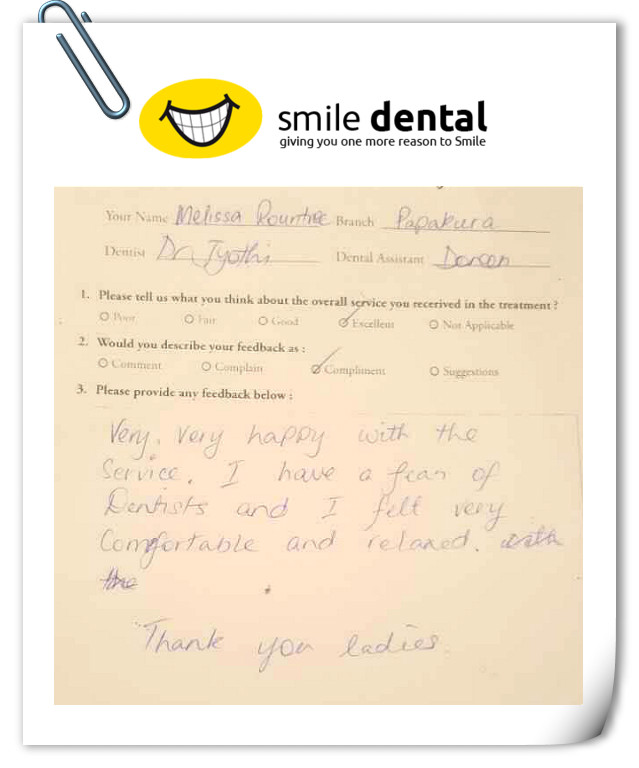 smile dental
giving you one more reason to Smile
Your Name Melissa Rountree Branch Papakura
Dentist Dr Jyothi Dental Assistant Doreen
1. Please tell us what you think about the overall service you recerived in the treatment ?
Poor Fair Good Excellent Not Applicable
2. Would you describe your feedback as :
Comment Complain Compliment Suggestions
3. Please provide any feedback below :
Very, Very happy with the
Service. I have a fear of
Dentists and I felt very
Comfortable and relaxed. with
the
Thank you ladies.